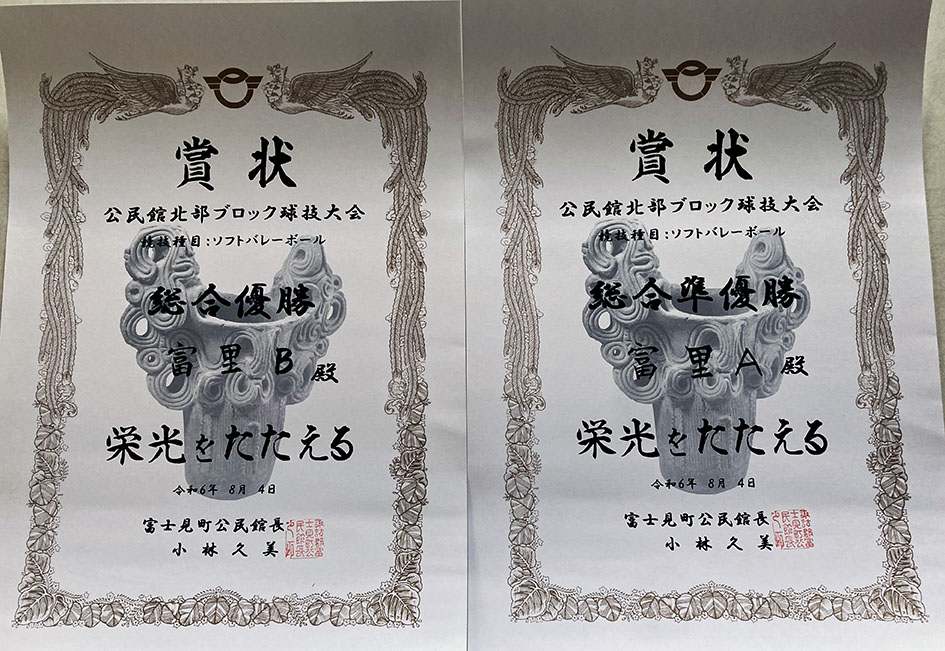 賞状
公民館北部ブロック球技大会
競技種目：ソフトバレーボール
総合優勝
富里B殿
栄光をたたえる
令和6年 8月 4日
富士見町公民館長
小林久美
賞状
公民館北部ブロック球技大会
競技種目：ソフトバレーボール
総合準優勝
富里A殿
栄光をたたえる
令和6年 8月 4日
富士見町公民館長
小林久美